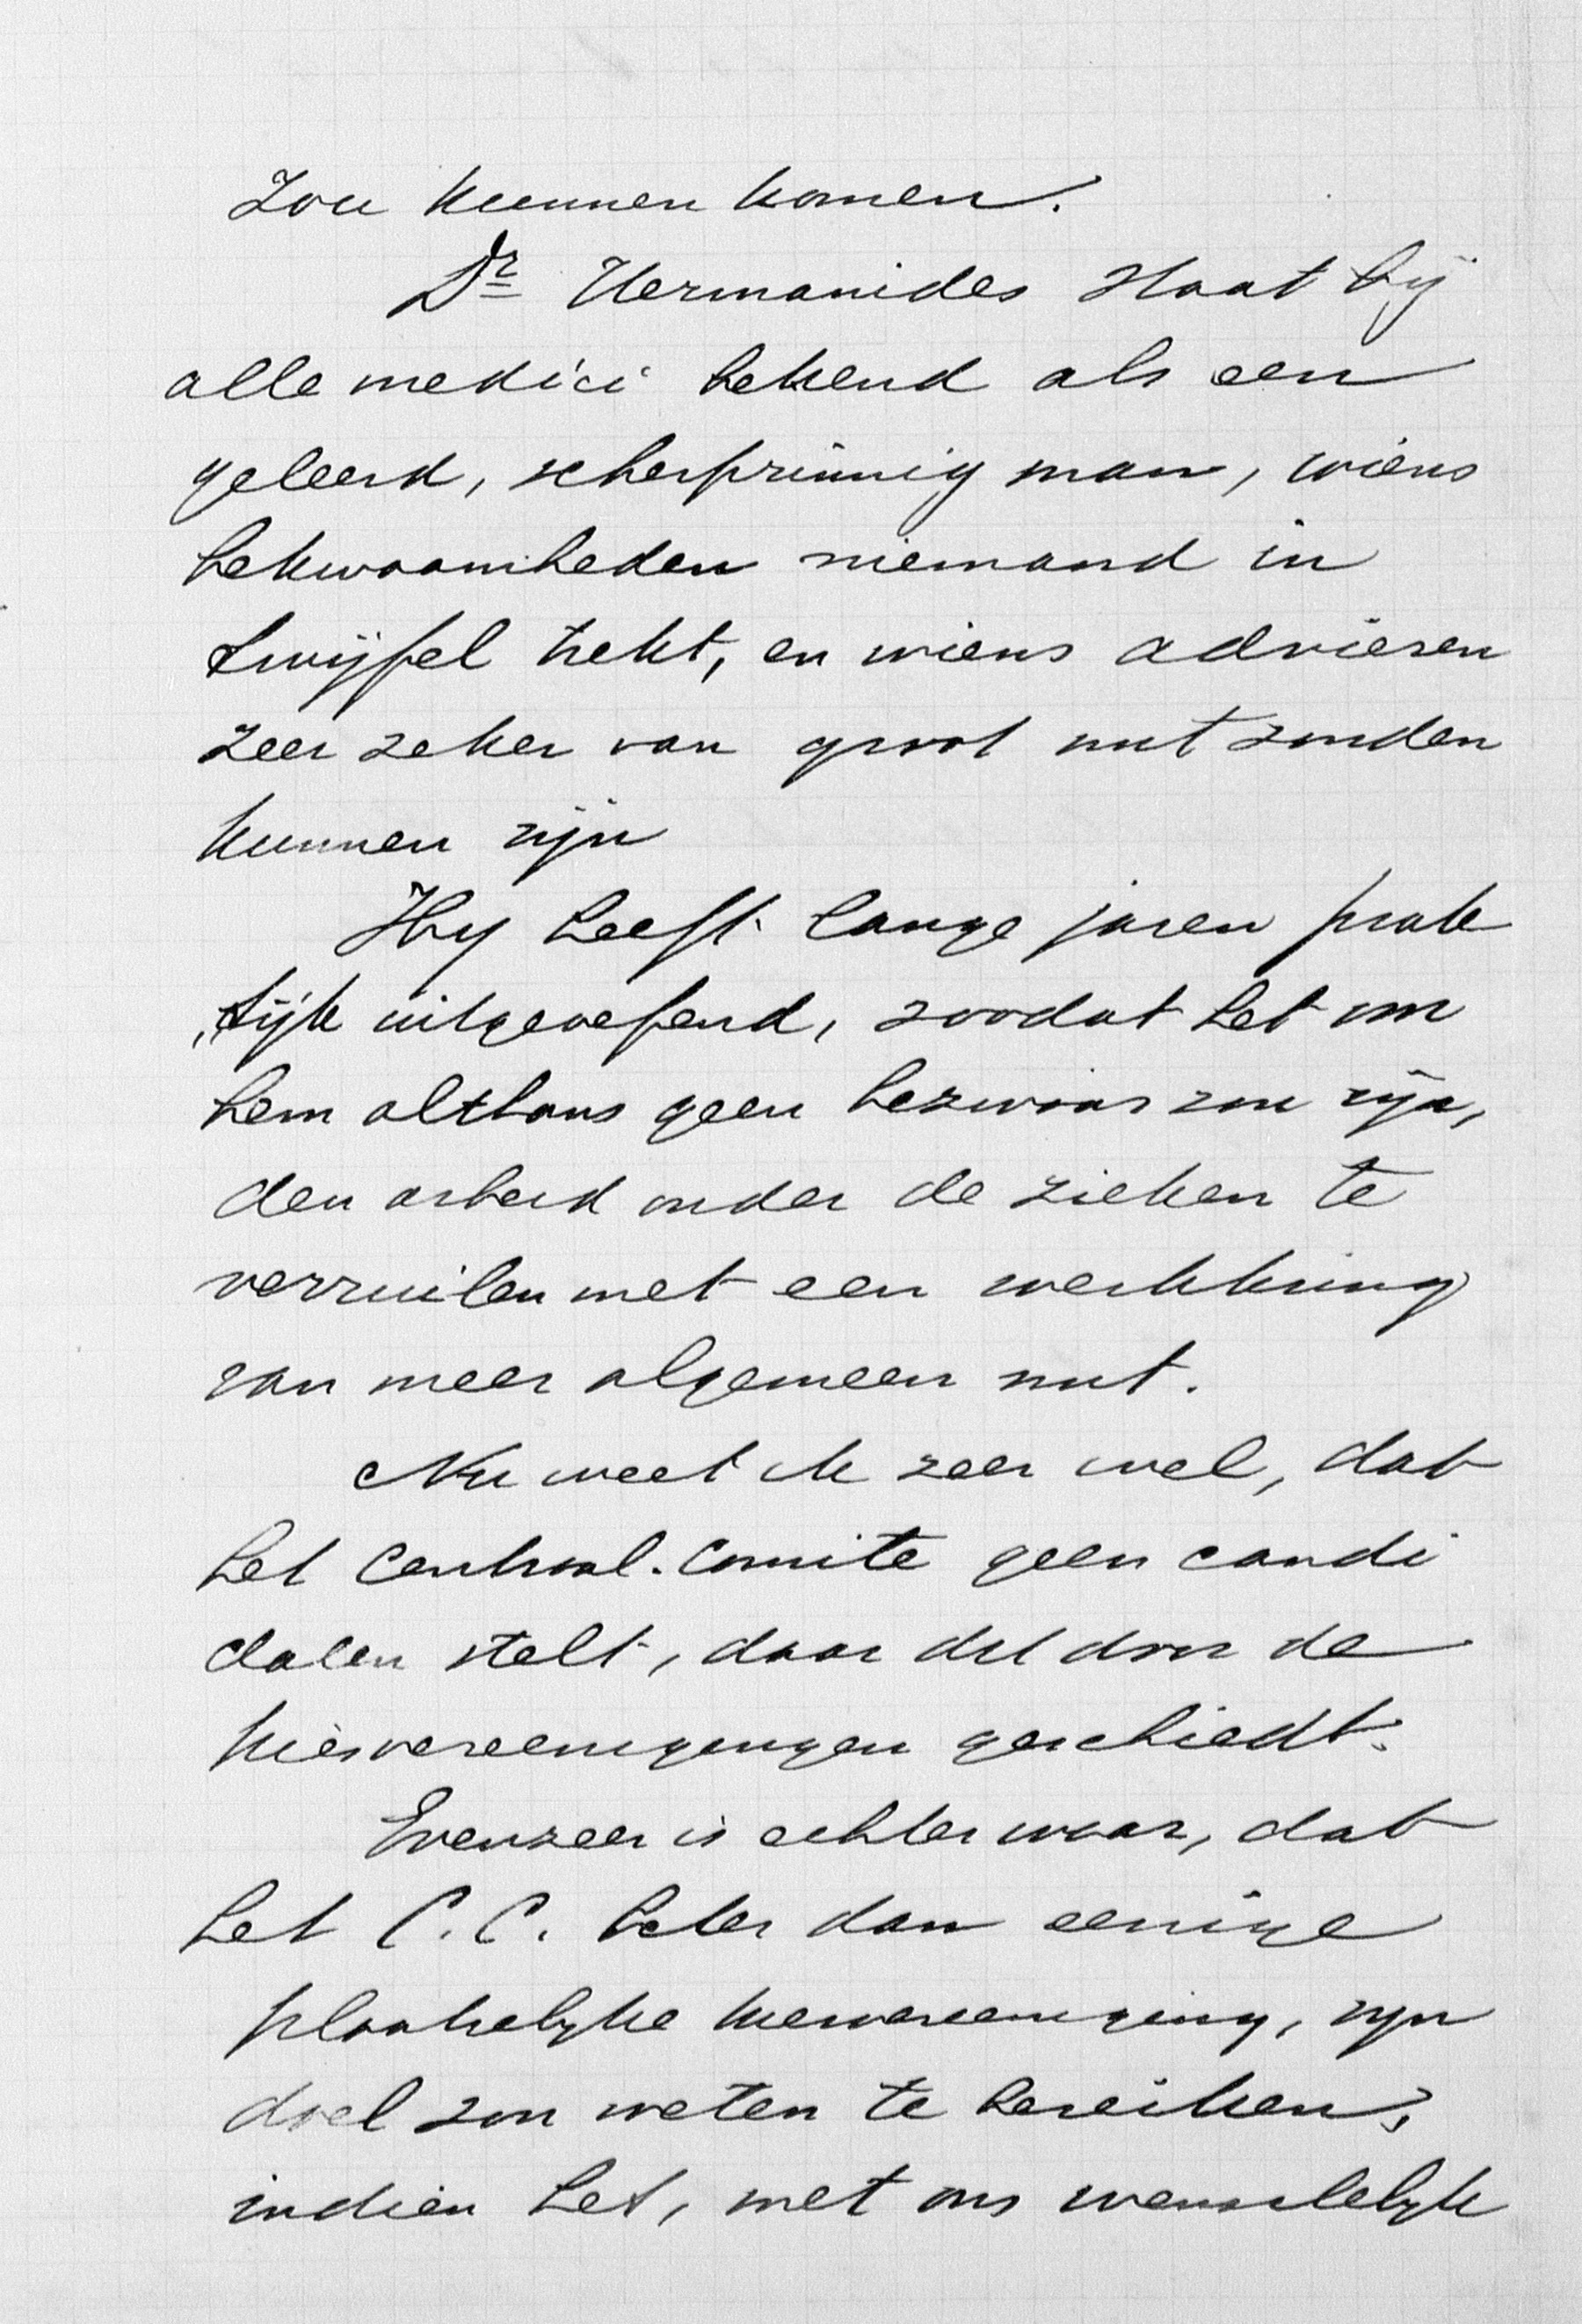 zou kunnen komen.
Dr Hermanides staat bij
alle medici bekend als een
geleerd, scherpzinnig man, wiens
bekwaamheden niemand in
twijfel trekt, en wiens adviezen
zeer zeker van groot nut zouden
kunnen zijn
Hij heeft lange jaren prak
„tijk uitgeoefend, zoodat het om
hem althans geen bezwaar zou zijn,
den arbeid onder de zieken te
verruilen met een werkkring
van meer algemeen nut.
Nu weet ik zeer wel, dat
het Centraal-Comite geen candi
daten stelt, daar dit door de
kiesvereenigingen geschiedt.
Evenzeer is echter waar, dat
het C. C. beter dan eenige
plaatselijke kiesvereeniging, zijn
doel zou weten te bereiken,
indien het, met ons wenschelijk